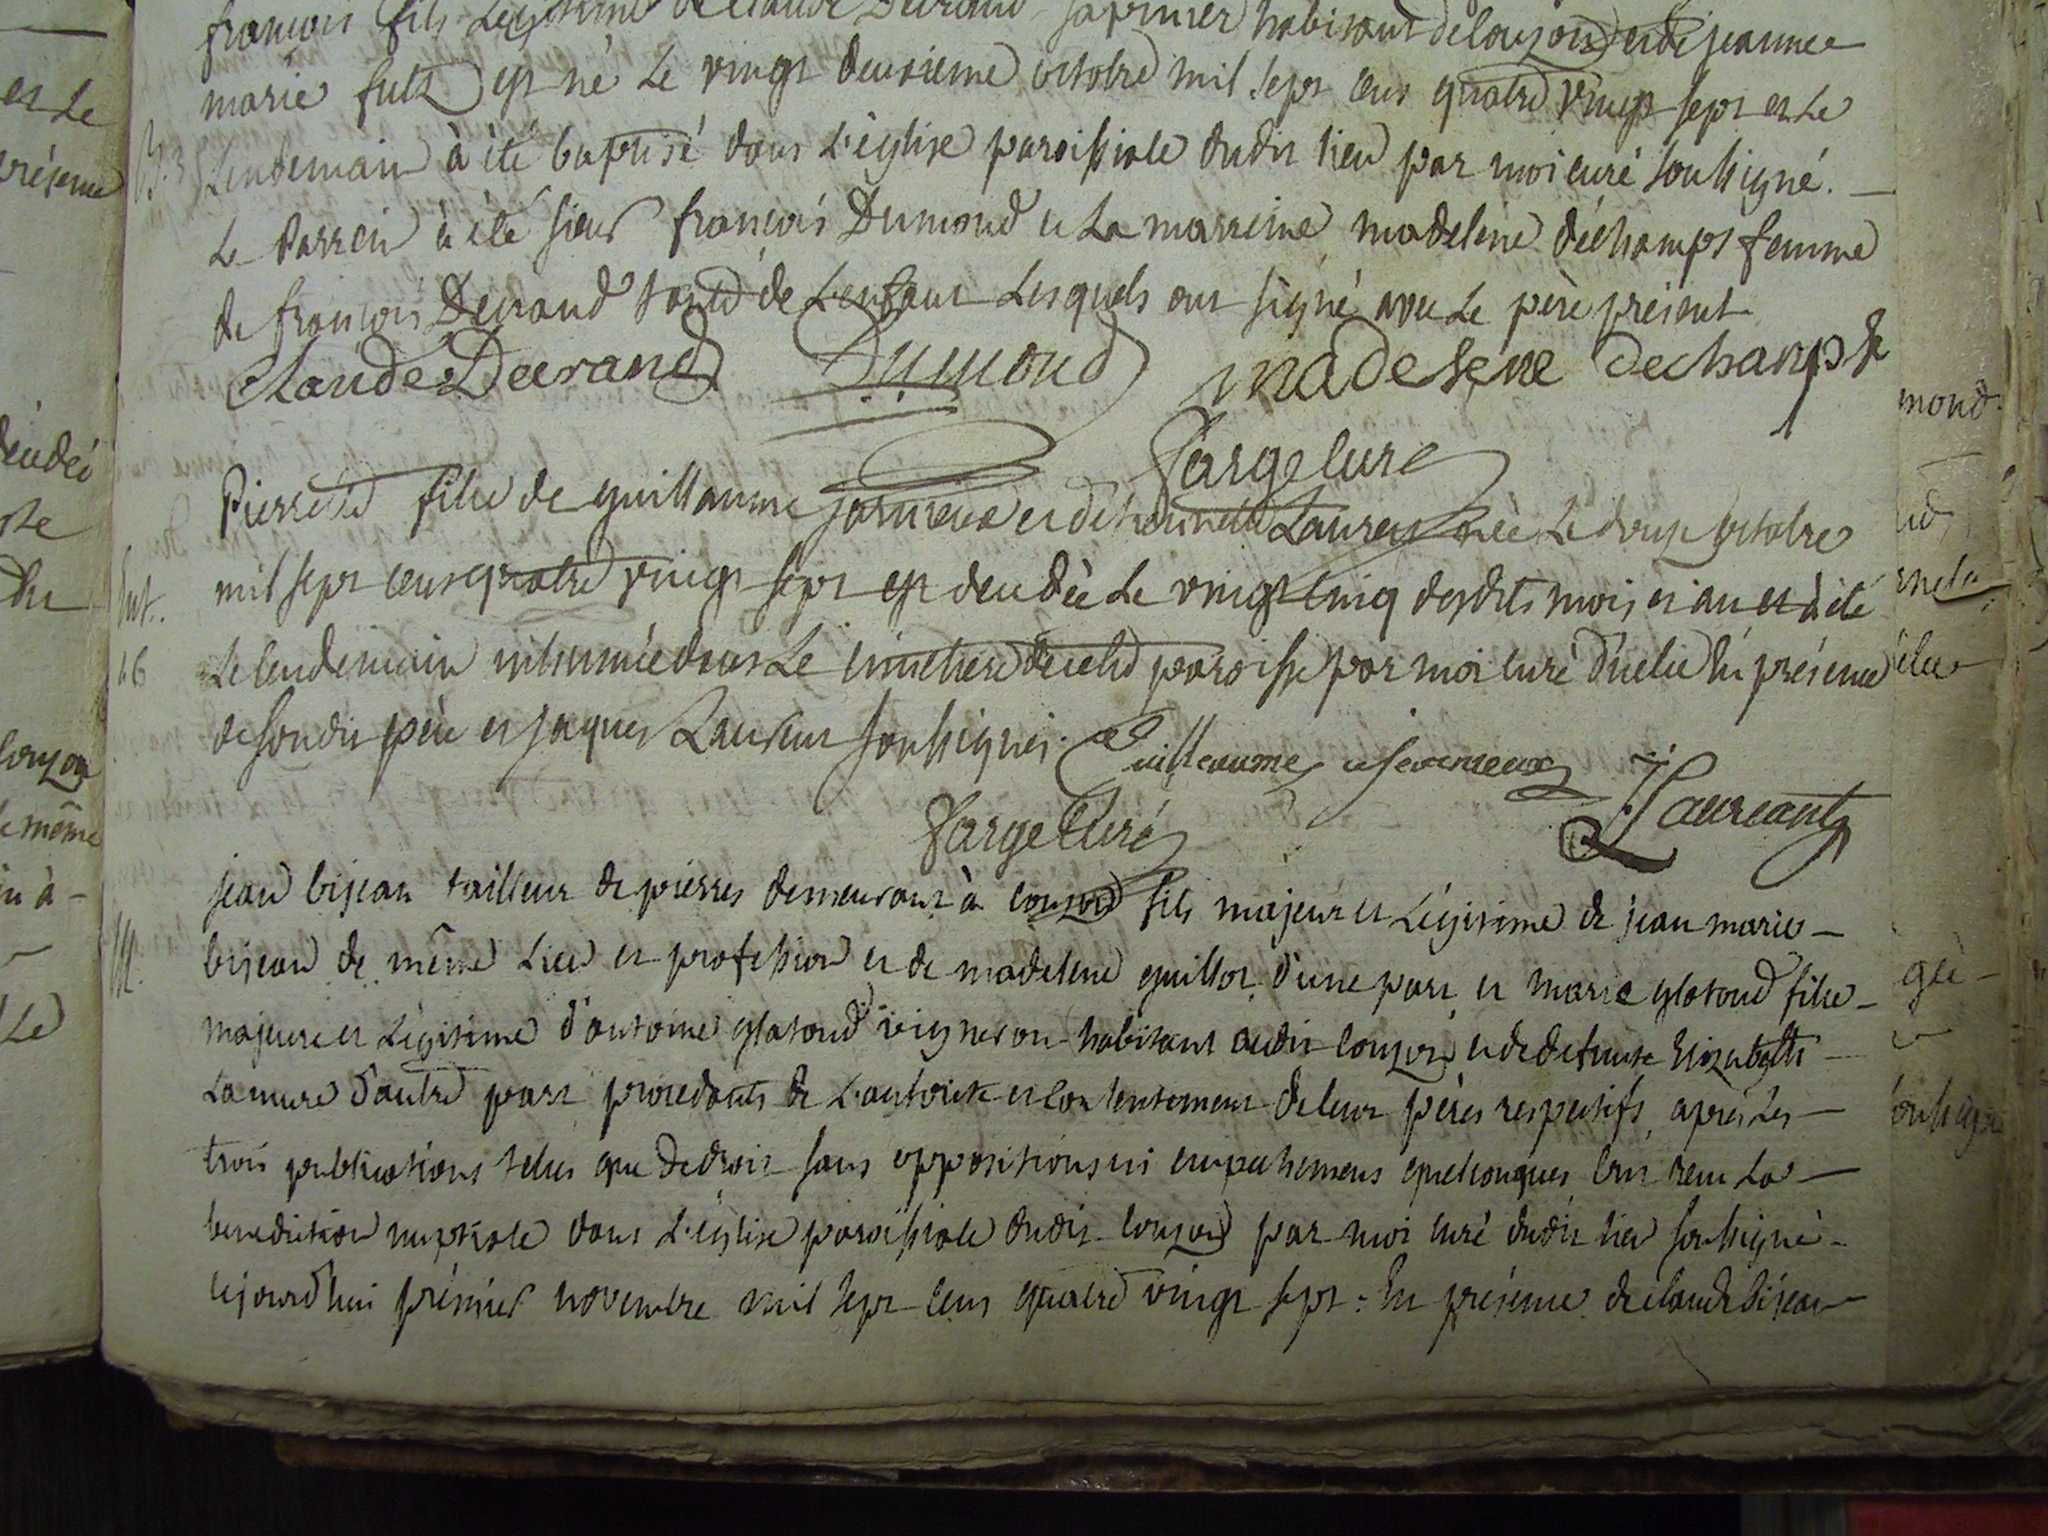 françois fils Légitime de claude Decrand habitant de couzon et de jeanne
marie futs est né Le vingt deuxieme octobre mil sept cent quatre vingt sept et Le
Lendemain à été baptisé dans L'église paroissiale dudit lieu par moi curé soussigné. —
Le Parrein à été sieur françois Dumond et La marreine madeleine déchamps femme
de françois Decrand tante de L'enfant Lesquels ont signé avec Le père présent
Claude Decrand Dumond madeleine dechamps
Farge curé
Pierrette fille de guillaume jarnieux et d'étiennette Laurent née Le douze octobre
mil sept cent quatre vingt sept est décédée Le vingt cinq desdits mois et an et à été
Le lendemain inhumée dans Le cimetiere de cette paroisse par moi curé d'icelle En présence
de son dit père et jaques Laurent soussignés. Guillaume jarnieux
J Laureant
Farge Curé
jean bijean tailleur de pierres demeurant à couzon fils majeur et Légitime de jean marie —
bijean de même Lieu et profession et de madelene guillot d'une part et marie glatoud fille —
majeure et Légitime d'antoine glatoud vigneron habitant audit couzon et de defunte Elizabeth —
Lamure d'autre part procedants de L'autorité et consentement de leur pères respectifs, après Les —
trois publications telles que de droit sans oppositions ni empechemens quelconques ont reçu La —
benediction nuptiale dans L'église paroissiale dudit couzon par moi curé dudit lieu soussigné —
cejourd'hui prémier novembre mil sept cent quatre vingt sept : En présence de claude bijean
et Le
présence
décédé
couzon
même
Le
mond
soussigné